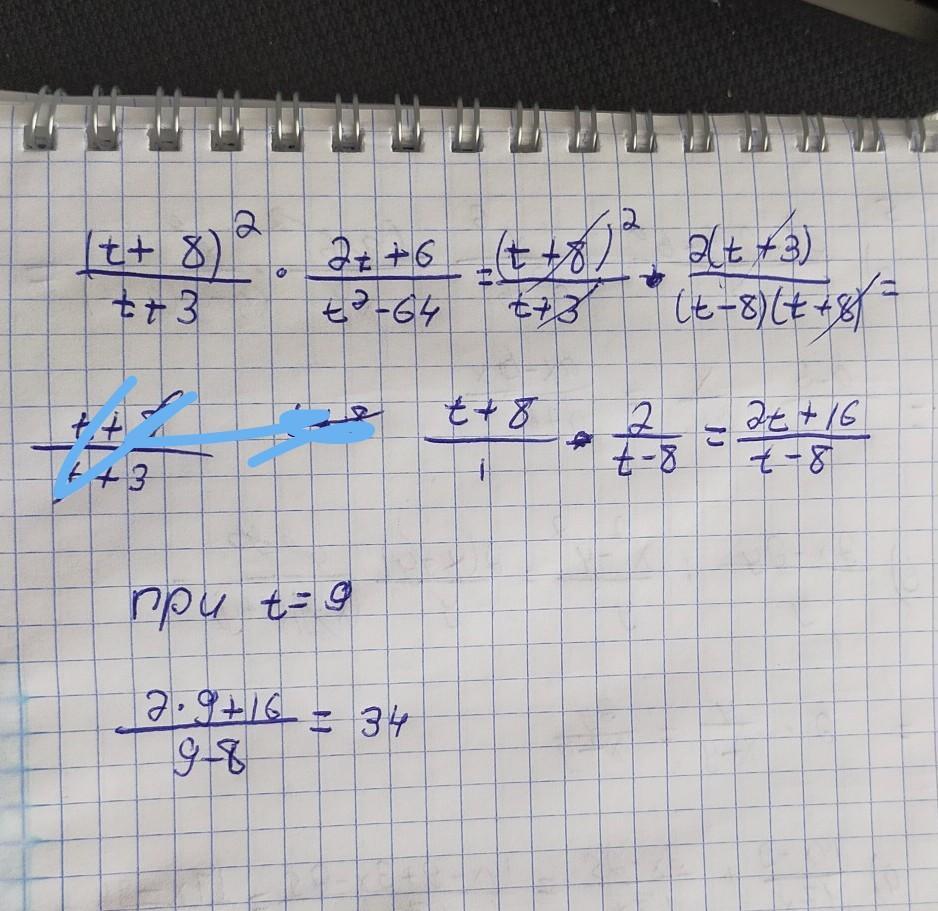 (t + 8)² / (t + 3) · (2t + 6) / (t² - 64) = (t + 8)² / (t + 3) · 2(t + 3) / (t - 8)(t + 8) =
t + 3 (t + 8) / 1 · 2 / (t - 8) = (2t + 16) / (t - 8)
при t = 9
(2 · 9 + 16) / (9 - 8) = 34